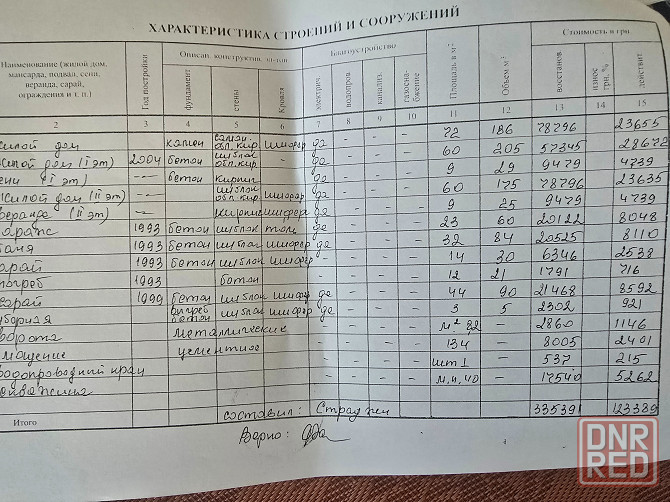 ХАРАКТЕРИСТИКА СТРОЕНИЙ И СООРУЖЕНИЙ
Наименование (жилой дом, мансарда, подвал, сени, веранда, сарай, ограждения и т. п.) Год постройки Описан. конструктив. эл-тов Благоустройство Площадь в м² Объем м³ Стоимость в грн.
фундамент стены Кровля электрич. водопров канализ. газосна-бжение восстанов. износ грн, % действит
2 3 4 5 6 7 8 9 10 11 12 13 14 15
илой дом камен саман. обл. кир. шифер да - - - 72 186 78796 23655
илой дом (I эт) 2004 бетон шлблок обл. кир. - да - - - 60 205 57345 28672
ени (I эт) — бетон кирпич - - - - 9 29 9479 4739
илой дом (II эт) — шлблок обл. кир. шифер да - - - 60 175 78796 23635
веранда (II эт) — кирпич шифер да - - - 9 25 9479 4739
араж 1993 бетон шлблок толь да - - - 23 60 20122 8048
баня 1993 бетон шлблок шифер да - - - 32 84 20525 8110
арай 1993 бетон шлблок шифер - - - - 14 30 6346 2538
погреб 1993 бетон - - - 12 21 1791 716
сарай 1999 бетон шлблок шифер да - - - 44 90 21468 8592
уборная бетон шлблок шифер да - - - 3 5 2302 921
ворота металлические - - - м² 82 - 2860 1146
мощение цементное - - - 134 - 8005 2401
водопроводный кран - - - шт 1 - 537 215
м.п. 40 - 17540 5262
Итого составил: 335391 123389
Верно:
DNR
RED